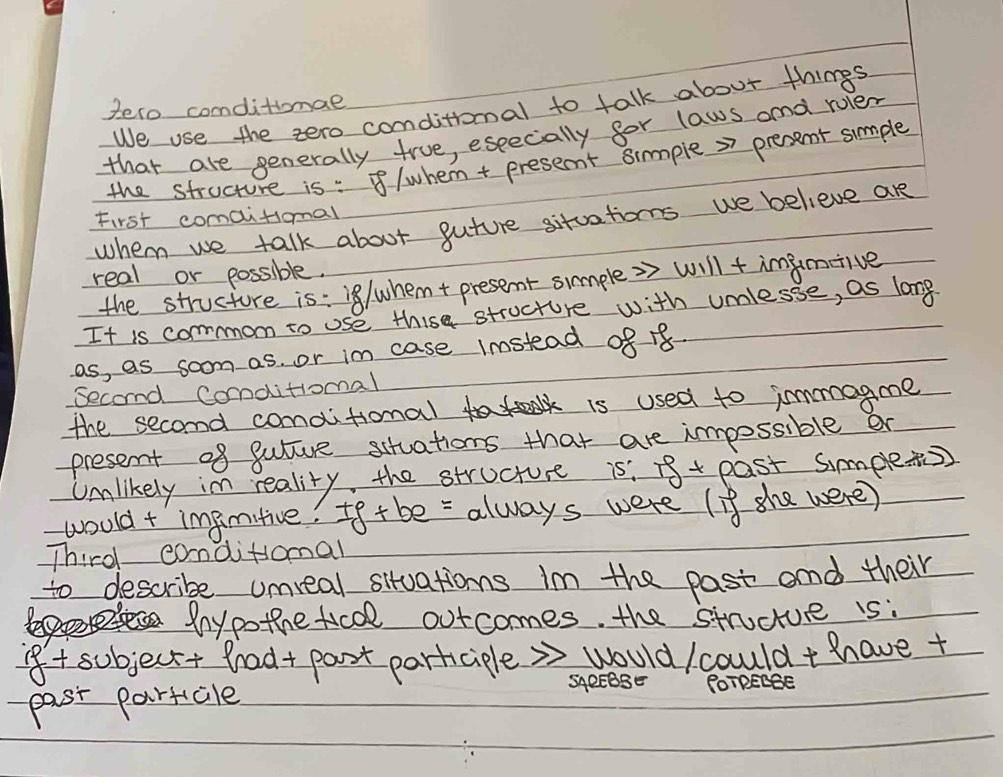 Zero comditionae
We use the zero comditional to talk about things
that are generally true, especially for laws amd rules
the structure is: if/whem + presemt simmple >> presemt simmple
First comditional
whem we talk about future situatioms we believe are
real or possible.
the structure is: if/whem + presemt simmple >> will + imfimitive
It is commmom to use this structure with umlesse, as lomg
as, as soom as. or im case imstead of if
Secomd Comditiomal
the secomd comditiomal is used to immmagime
presemt of future situatioms that are impossible or
Umlikely im reality. the structure is: if + past simmple >>
would + imfimitive! If + be = always were (if she were)
Third comditiomal
to describe umreal situatioms Im the past amd their
hypothetical outcomes. the structure is:
if + subject + had + past participle >> would/could + have +
SAREBBE POTREBBE
past particile